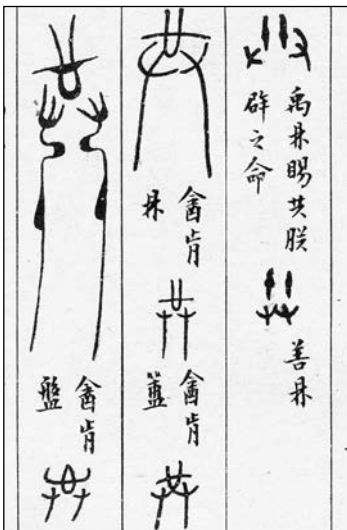 禹鼎賜共朕
辟之命
善鼎
酓肯
鼎
酓肯
簠
酓肯
盤